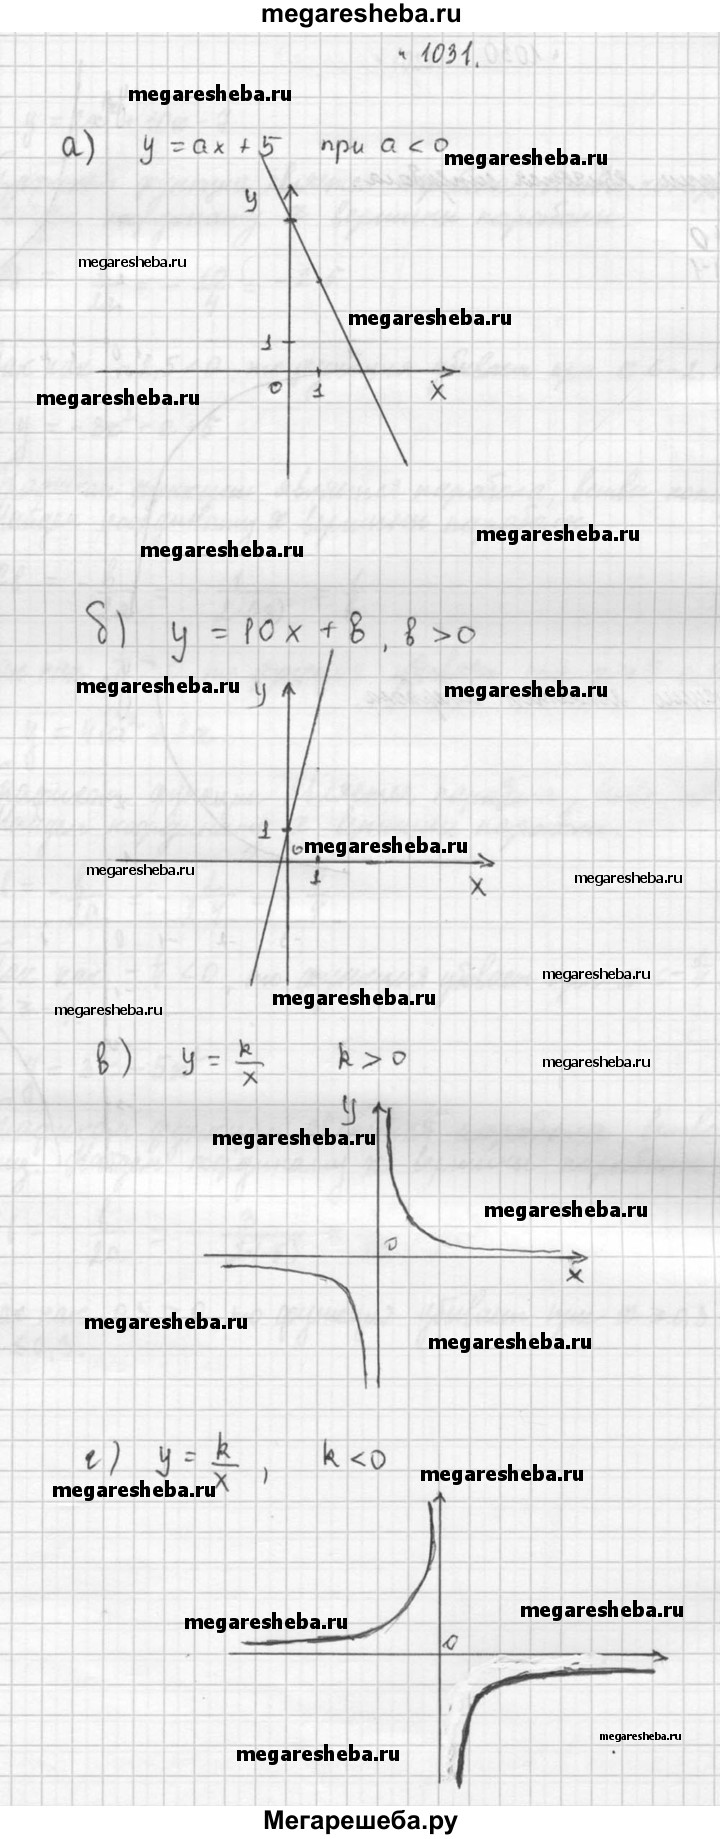 megaresheba.ru
1031.
megaresheba.ru
а) y = ax + 5 при a < 0
megaresheba.ru
y
megaresheba.ru
megaresheba.ru
1
0 1 x
megaresheba.ru
megaresheba.ru
megaresheba.ru
б) y = 10x + в, в > 0
megaresheba.ru
y
megaresheba.ru
1
0
megaresheba.ru
megaresheba.ru
1
x
megaresheba.ru
megaresheba.ru
megaresheba.ru
megaresheba.ru
в) y = k/x k > 0
megaresheba.ru
y
megaresheba.ru
megaresheba.ru
0
x
megaresheba.ru
megaresheba.ru
г) y = k/x, k < 0
megaresheba.ru
megaresheba.ru
megaresheba.ru
megaresheba.ru
0
megaresheba.ru
megaresheba.ru
Мегарешеба.ру